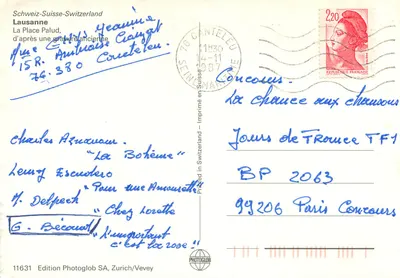 Schweiz-Suisse-Switzerland
Lausanne
La Place Palud,
d'après une ancienne
Mme Jeannine
15 R.
76.380 Canteleu
Charles Aznavour
"La Bohème"
Leny Escudero
"Pour une Amourette"
M. Delpech
"Chez Lorette
G. Bécaud
"L'important
c'est la rose"
11631 Edition Photoglob SA, Zurich/Vevey
Printed in Switzerland - Imprimé en Suisse
PHOTOGLOB
76 CANTELEU
SEINE MARITIME
2,20
REPUBLIQUE FRANÇAISE
Concours
La chance aux chansons
Jours de France TF1
BP 2063
99206 Paris Concours